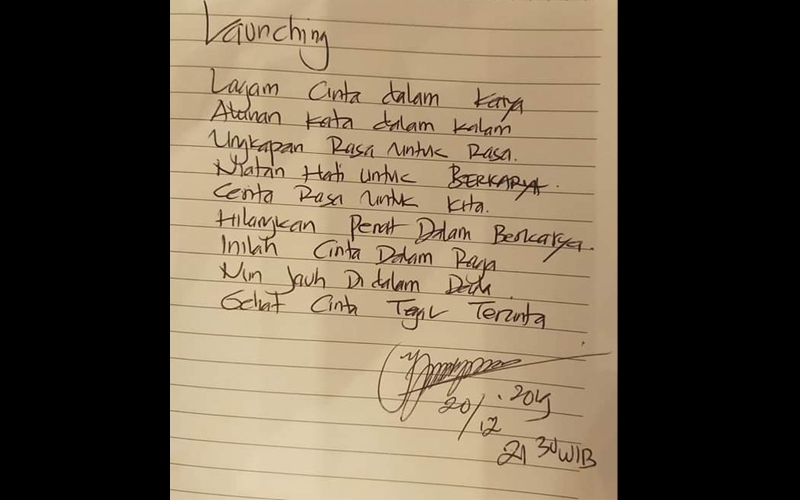 Launching
Lagam Cinta dalam Karya
Atunan Kata dalam Kalam
Ungkapan Rasa untuk Rasa.
Niatan Hati untuk BERKARYA.
Cerita Rasa untuk Kita.
Hilangkan Penat Dalam Berkarya.
Inilah Cinta Dalam Raga
Nun Jauh Di dalam
Cinta
20/12
21 30 WIB